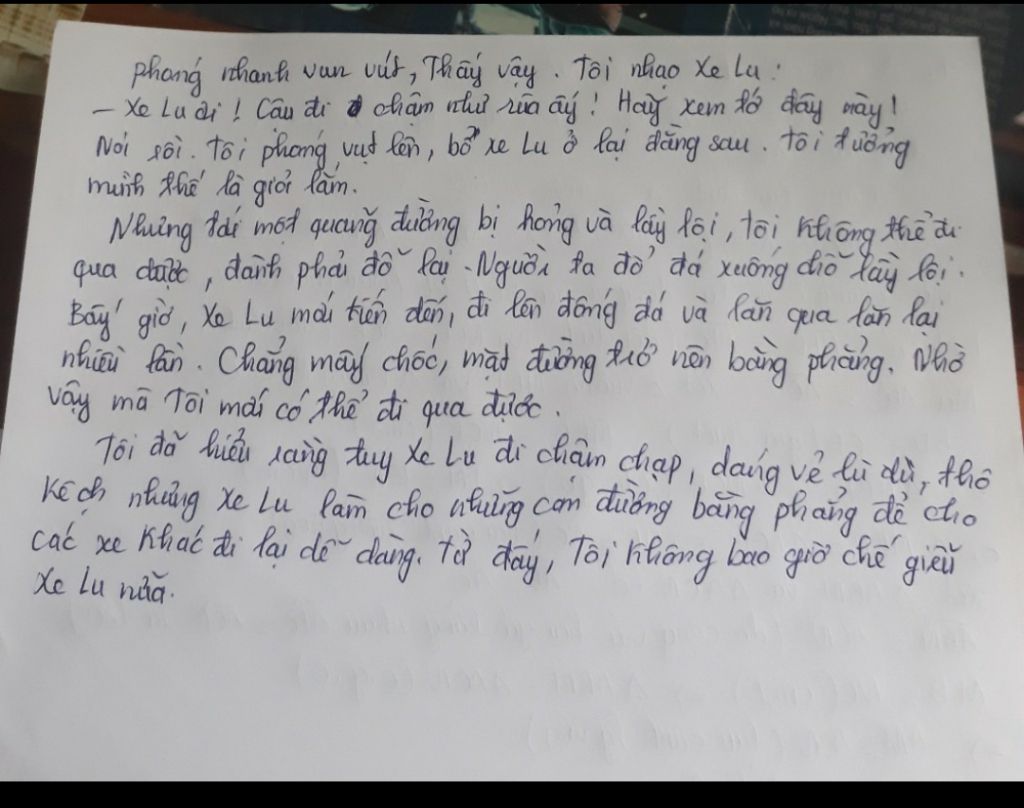 phóng nhanh vun vút, Thấy vậy. Tôi nhạo Xe Lu:
– Xe Lu ơi! Cậu đi chậm như rùa ấy! Hãy xem tớ đây này!
Nói rồi. Tôi phóng vụt lên, bỏ xe Lu ở lại đằng sau. Tôi tưởng
mình thế là giỏi lắm.
Nhưng tới một quãng đường bị hỏng và lầy lội, tôi không thể đi
qua được, đành phải đỗ lại. Người ta đổ đá xuống chỗ lầy lội.
Bấy giờ, Xe Lu mới tiến đến, đi lên đống đá và lăn qua lăn lại
nhiều lần. Chẳng mấy chốc, mặt đường trở nên bằng phẳng. Nhờ
vậy mà Tôi mới có thể đi qua được.
Tôi đã hiểu rằng tuy Xe Lu đi chậm chạp, dáng vẻ lù dù, thô
kệch nhưng Xe Lu làm cho những con đường bằng phẳng để cho
các xe khác đi lại dễ dàng. Từ đấy, Tôi không bao giờ chế giễu
Xe Lu nữa.